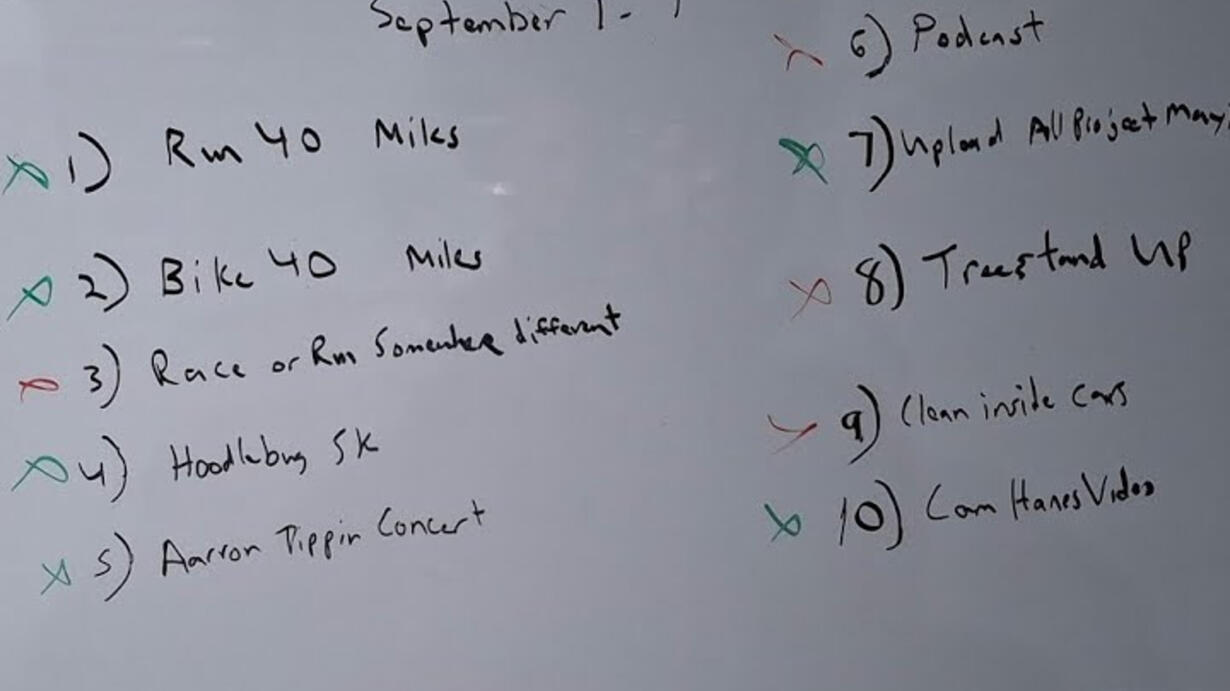 September 1-
1) Run 40 Miles
2) Bike 40 Miles
3) Race or Run Somewhere different
4) Hoodlebug 5K
5) Aarron Tippin Concert
6) Podcast
7) Upload All Project Many
8) Treestand Up
9) Clean inside Cars
10) Cam Hanes Video